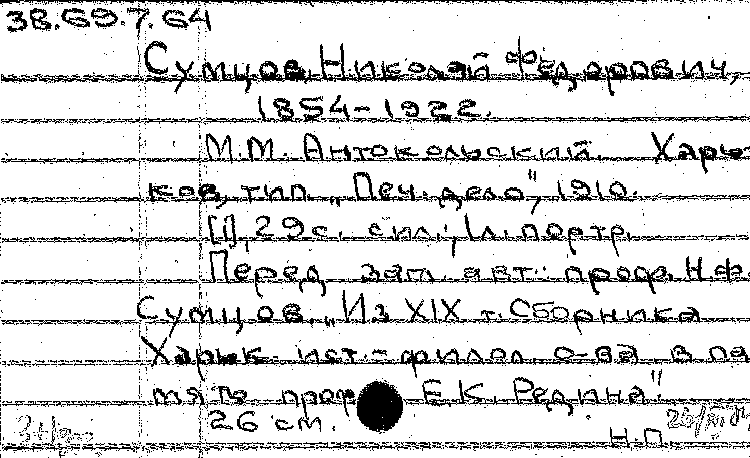 38.69.7.64
Сумцов, Николай Федорович,
1854-1922.
М.М. Антокольский. Харь-
ков, тип. „Печ. дело", 1910.
[1], 29 с. с ил.; 1 л. портр.
Перед загл. авт.: проф. Н.Ф.
Сумцов. „Из XIX т. Сборника
Харьк. ист.-филол. о-ва в па
мять проф. Е.К. Редина"
26 см.
Н.П.